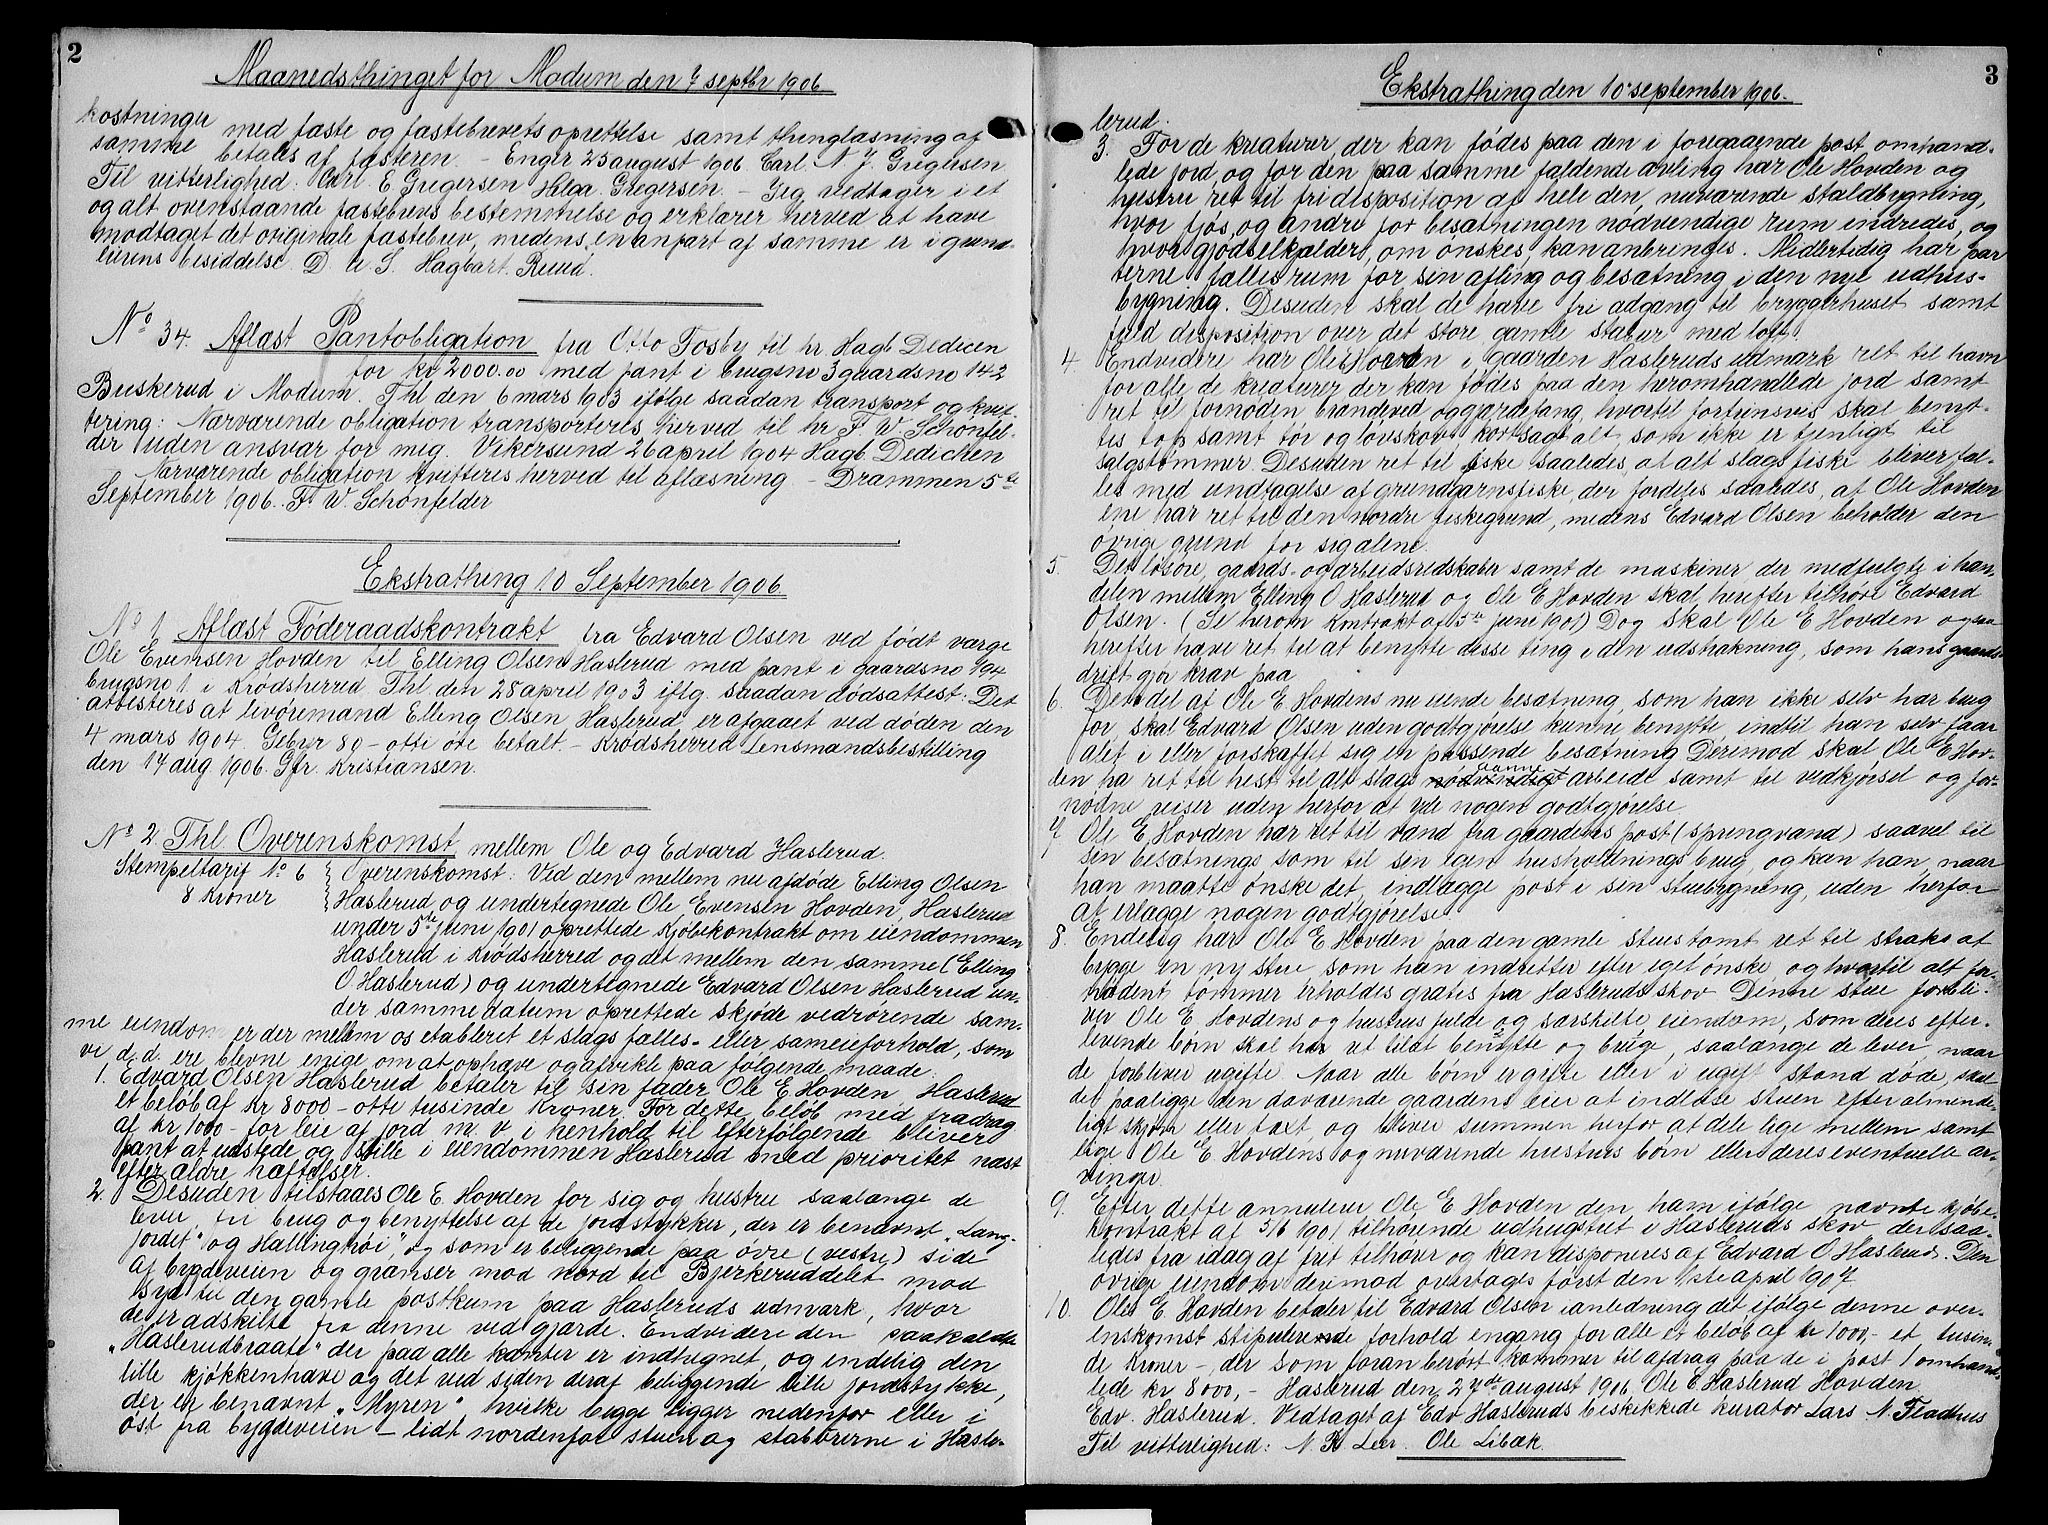 2
Maanedsthinget for Modum den 7 septbr 1906
kostninger med fæste og fæstebrevets oprettelse samt thinglæsning af
samme betales af fæsteren. – Enger 25 august 1906. Carl N. J. Gregersen
Til vitterlighed: Carl E. Gregersen Helga Gregersen. – Jeg vedtager i et
og alt ovenstaaende fæstebrevs bestemmelse og erklærer herved at have
modtaget det originale fæstebrev, medens en anpart af samme er i grund-
eierens besiddelse. D. u S. Hagbart Ruud.
No 34. Aflæst Pantobligation fra Otto Fosby til hr Hagb Dedicen
for kr 2000.00 med pant i brugsno 3 gaardsno 142
Buskerud i Modum. Thl den 6 mars 1903 ifølge saadan transport og kvit-
tering: Nærværende obligation transporteres herved til hr F. W. Schönfel-
der uden ansvar for mig. Vikersund 26 april 1904 Hagb. Dedichen
Nærværende obligation kvitteres herved til aflæsning – Drammen 5te
September 1906. F. W. Schönfelder
Ekstrathing 10 September 1906
No 1 Aflæst Föderaadskontrakt fra Edvard Olsen ved født værge
Ole Evensen Hovden til Elling Olsen Haslerud med pant i gaardsno 194
brugsno 1 i Krødsherred Thl den 28 april 1903 iflg. saadan dødsattest: Det
attesteres at levöremand Elling Olsen Haslerud er afgaaet ved døden den
4 mars 1904. Gebyr 80 – otti öre betalt. – Krødsherred Lensmandsbestilling
den 17 aug 1906. Gfr. Kristiansen.
No 2 Thl Overenskomst mellem Ole og Edvard Haslerud.
Stempeltarif No 6
8 Kroner
Overenskomst: Ved den mellem nu afdöde Elling Olsen
Haslerud og undertegnede Ole Evensen Hovden, Haslerud
under 5te juni 1901 oprettede Kjöbekontrakt om eiendommen
Haslerud i Krødsherred og det mellem den samme (Elling
O Haslerud) og undertegnede Edvard Olsen Haslerud un-
der samme datum oprettede skjøde vedrörende sam-
me eiendom er der mellem os etableret et slags fælles- eller sameieforhold, som
vi d. d. ere blevne enige om at ophæve og afvikle paa følgende maade:
1. Edvard Olsen Haslerud betaler til sin fader Ole E Hovden, Haslerud
et beløb af kr 8000 – otte tusinde kroner. For dette beløb med fradrag
af kr 1000 – for leie af jord m. v. i henhold til efterfølgende bliver
pant at udstede og stille i eiendommen Haslerud med prioritet næst
efter ældre hæftelser.
2. Desuden tilstaaes Ole E. Hovden for sig og hustru saalænge de
lever, fri brug og benyttelse af de jordstykker, der er benævnt „Lang-
jordet" og Hallinghöi", og som er beliggende paa övre (vestre) side
af bygdeveien og grænser mod nord til Bjerkeruddelet mod
syd til den gamle postkum paa Hasleruds udmark, hvor
de er adskilte fra denne ved gjærde. Endvidere den saakaldte
„Haslerudbraate" der paa alle kanter er indhegnet, og endelig den
lille kjøkkenhave og det ved siden deraf beliggende lille jordstykke,
der er benævnt „Myren" hvilke begge ligger nedenfor eller i
öst fra bygdeveien – lidt nordenfor stuen og staburerne i Hasle-
3
Ekstrathing den 10 september 1906.
lerud.
3. For de kreaturer, der kan fødes paa den i foregaaende post omhand-
lede jord og for den paa samme faldende avling har Ole Hovden og
hustru ret til fri disposition af hele den nuværende staldbygning,
hvor fjøs og andre for besætningen nödvendige rum indredes, og
hvor gjødselkjelder, om ønskes, kan anbringes. Midlertidig har par-
terne fælles rum for sin afling og besætning i den nye udhus-
bygning. Desuden skal de have fri adgang til bryggerhuset samt
fuld disposition over det store gamle stabur med loft.
4. Endvidere har Ole Hovden i gaarden Hasleruds udmark ret til havn
for alle de kreaturer der kan fødes paa den heromhandlede jord samt
ret til fornøden brændeved og gjærdefang, hvortil fortrinsvis skal benyt-
tes top samt tör og løvskov kortsagt alt som ikke er tjenligt til
salgstømmer. Desuden ret til fiske saaledes, at alt slags fiske bliver fæl-
les med undtagelse af grundgarnsfiske, der fordeles saaledes, at Ole Hovden
ene har ret til den nordre fiskegrund, medens Edvard Olsen beholder den
övrige grund for sig alene.
5. Det løsøre, gaards- og arbeidsredskaber samt de maskiner der medfulgte i han-
delen mellem Elling O Haslerud og Ole E Hovden skal herefter tilhøre Edvard
Olsen. (Se herom Kontrakt af 5te juni 1901) Dog skal Ole E Hovden ogsaa
herefter have ret til at benytte disse ting i den udstrækning, som hans gaards-
drift gjør krav paa
6. Den del af Ole E Hovdens nu eiende besætning, som han ikke selv har brug
for, skal Edvard Olsen uden godtgjørelse kunne benytte, indtil han selv faar
alet i eller forskaffet sig en passende besætning. Derimod skal Ole E Hov-
den ha ret til hest til alt slags nødvendigt aanne arbeide samt til vedkjørsel og for-
nødne reiser uden herfor at yde nogen godtgjørelse
7 Ole E Hovden har ret til vand fra gaardens post (springvand) saavel til
sin besætnings som til sin egen husholdnings brug, og kan han, naar
han maatte önske det, indlægge post i sin stuebygning, uden herfor
at erlægge nogen godtgjørelse.
8. Endelig har Ole E Hovden paa den gamle stuestomt ret til straks at
bygge en ny stue som han indretter efter eget ønske, og hvortil alt for-
nødent tømmer erholdes gratis fra Hasleruds skov. Denne stue forbli-
ver Ole E Hovdens og hustrus fulde og særskilte eiendom, som deres efter-
levende børn skal har ret til at benytte og bruge, saalænge de lever, naar
de forbliver ugifte. Naar alle børn er gifte eller i ugift stand døde, skal
det paaligge den daværende gaardens eier at indløse stuen efter alminde-
ligt skjøn eller taxt, og bliver summen herfor at dele lige mellem samt
lige Ole E. Hovdens og nuværende hustrus børn eller deres eventuelle ar-
vinge.
9. Efter dette annulerer Ole E Hovden den ham ifølge nævnte kjøbe-
kontrakt af 5/6 1901 tilhørende udhugstret i Hasleruds skov der saa-
ledes fra idag af frit tilhører og kan disponeres af Edvard O Haslerud. Den
övrige eiendom derimod overtages først den 1ste april 1907.
10. Ole E. Hovden betaler til Edvard Olsen i anledning det ifølge denne over-
enskomst stipulerede forhold engang for alle et beløb af kr 1000,- et tusin-
de kroner – der som foran berørt kommer til afdrag paa de i post 1 omhand-
lede kr 8000,- Haslerud den 27de august 1906 Ole E. Haslerud Hovden
Edv. Haslerud. Vedtaget af Edv Hasleruds beskikkede kurator Lars N. Fladhus
Til vitterlighed: N. K Leer. Ole Libæk.